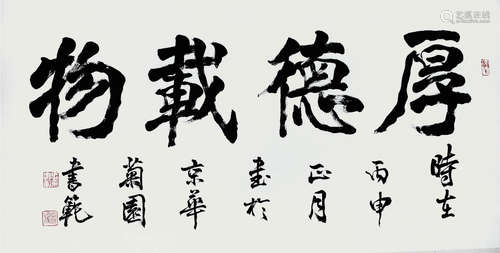 厚德載物
時在
丙申
正月
書於
京華
菊園
書範